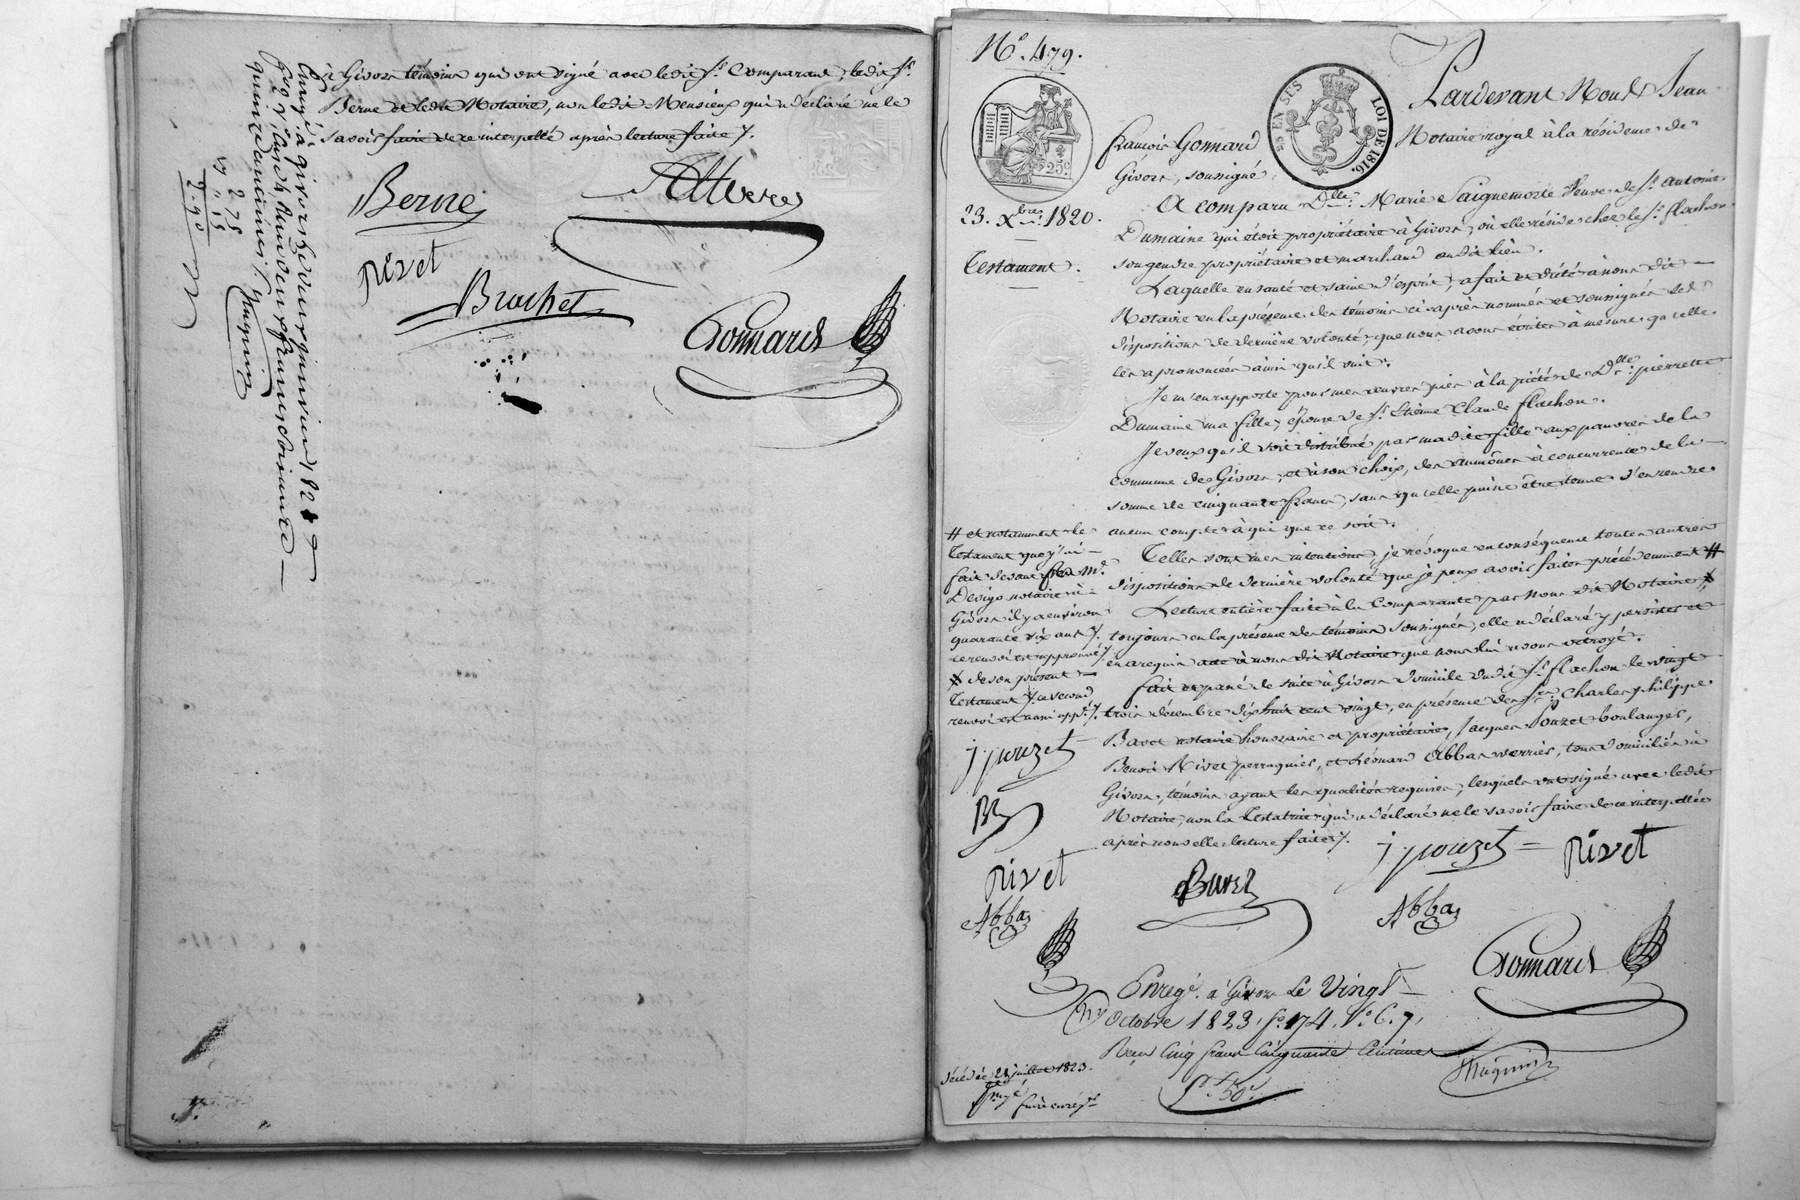 à Givors témoins qui ont signé avec ledit Sr. Comparant, ledit Sr.
Berne et ledit Notaire, non ledit Mensieux qui a déclaré ne le
savoir faire de ce interpellé après lecture faite ./.
Berne
Rivet
Brochet
Gonnard
Enregé. à givors le deux janvier 1821
quinze centimes ./.
2 75
" 15
2. 90
No. 479.
25c.
LOI DE 1816.
23. Xbre. 1820.
Testament.
Pardevant Nous Jean
François Gonnard Notaire royal à la résidence de
Givors, soussigné
A comparu Dlle. Marie Saignemorte Veuve de Sr. Antoine
Dumaine qui étoit propriétaire à Givors, où elle réside chez le Sr. flachon
son gendre propriétaire et marchand audit lieu.
Laquelle en santé et saine d'esprit, a fait et dicté à nous dit
Notaire en la présence des témoins ci-après nommés et soussignés ses
dispositions de dernière volonté, que nous avons écrites à mesure qu'elle
les a prononcées ainsi qu'il suit.
Je m'en rapporte pour mes œuvres pies à la piété de Dlle. pierrette
Dumaine ma fille, épouse de Sr. Etienne Claude flachon.
Je veux qu'il soit distribué par madite fille aux pauvres de la
commune de Givors, et à son choix, des aumônes à concurrence de la
somme de cinquante francs, sans qu'elle puisse être tenue d'en rendre
aucun compte à qui que ce soit.
Telles sont mes intentions, je révoque en conséquence toutes autres
dispositions de dernière volonté que je peux avoir faites précédemment #
Lecture entière faite à la Comparante par Nous dit Notaire, X
toujours en la présence des témoins soussignés, elle a déclaré y persister et
en a requis acte à nous dit Notaire que nous lui avons octroyé.
fait et passé de suite à Givors domicile dudit Sr. flachon le vingt
trois décembre dix huit cent vingt, en présence des Srs. Charles philippe
Bavet notaire honoraire et propriétaire, Jacques Pouzet boulanger,
Benoit Rivet perruquier, et Léonard Abbas verrier, tous domiciliés à
Givors, témoins ayant les qualités requises, lesquels ont signé avec ledit
Notaire, non la Testatrice qui a déclaré ne le savoir faire de ce interpellée
après nouvelle lecture faite ./.
# et notamment le
Testament que j'ai
fait devant feu Me.
Devigo notaire à
Givors il y a environ
quarante six ans ./.
ce renvoi est approuvé ./.
X de son présent
Testament ./. ce second
renvoi est aussi appé ./.
j pouzet
Rivet
Abbas
j pouzet
Rivet
Abbas
Gonnard
Enregé. à Givors Le Vingt
Octobre 1823, fo. 174, Vo. C. 7,
Reçu Cinq francs Cinquante Centimes
5f. 50c.
décédée 21 juillet 1823.